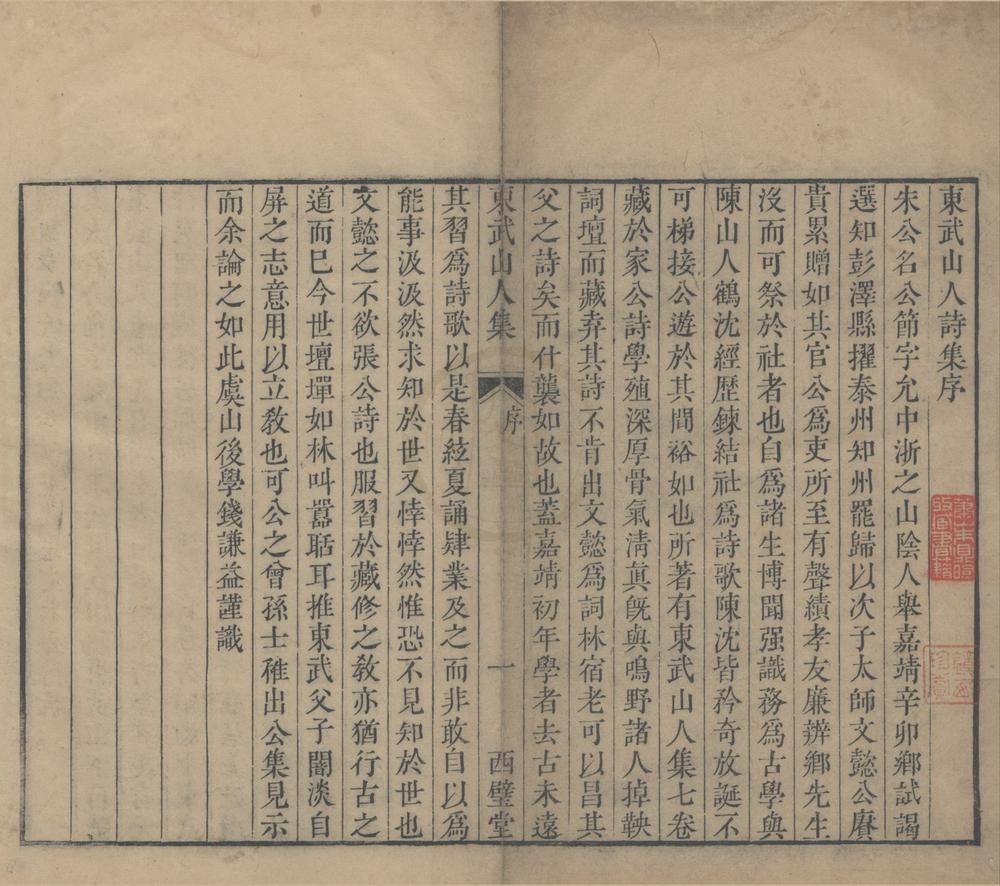 東武山人詩集序
朱公名公節字允中浙之山陰人舉嘉靖辛卯鄉試謁
選知彭澤縣擢泰州知州罷歸以次子太師文懿公賡
貴累贈如其官公爲吏所至有聲績孝友廉辨鄉先生
沒而可祭於社者也自爲諸生博聞强識務爲古學與
陳山人鶴沈經歷鍊結社爲詩歌陳沈皆矜奇放誕不
可梯接公遊於其間裕如也所著有東武山人集七卷
藏於家公詩學殖深厚骨氣淸眞旣與鳴野諸人掉鞅
詞壇而藏弆其詩不肯出文懿爲詞林宿老可以昌其
父之詩矣而什襲如故也蓋嘉靖初年學者去古未遠
東武山人集 序 一 西璧堂
其習爲詩歌以是春絃夏誦肄業及之而非敢自以爲
能事汲汲然求知於世又悻悻然惟恐不見知於世也
文懿之不欲張公詩也服習於藏修之敎亦猶行古之
道而巳今世壇墠如林叫囂聒耳推東武父子闇淡自
屏之志意用以立敎也可公之曾孫士稚出公集見示
而余論之如此虞山後學錢謙益謹識